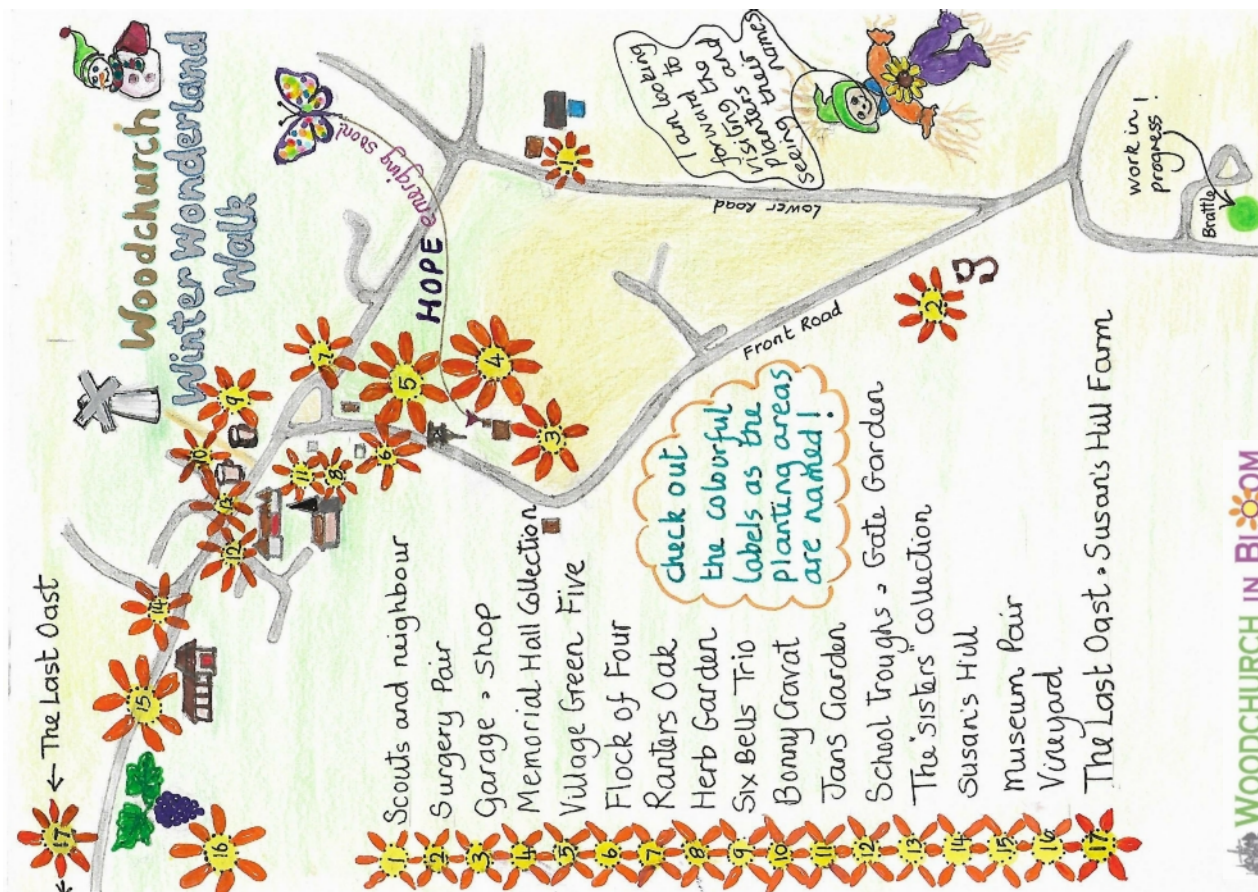 Woodchurch
Winter Wonderland
Walk
HOPE emerging soon!
I am looing
forward to
visiting the
planters and
seeing their names
Lower Road
Front Road
work in
progress!
Brattle
check out
the colourful
labels as the
planting areas
are named!
← The Last Oast
1
2
3
4
5
6
7
8
9
10
11
12
14
15
16
17
1 Scouts and neighbour
2 Surgery Pair
3 Garage > Shop
4 Memorial Hall Collection
5 Village Green Five
6 Flock of Four
7 Ranters Oak
8 Herb Garden
9 Six Bells Trio
10 Bonny Cravat
11 Jans Garden
12 School Troughs > Gate Garden
13 The "sisters" collection
14 Susan's Hill
15 Museum Pair
16 Vineyard
17 The Last Oast > Susan's Hill Farm
WOODCHURCH IN BLOOM